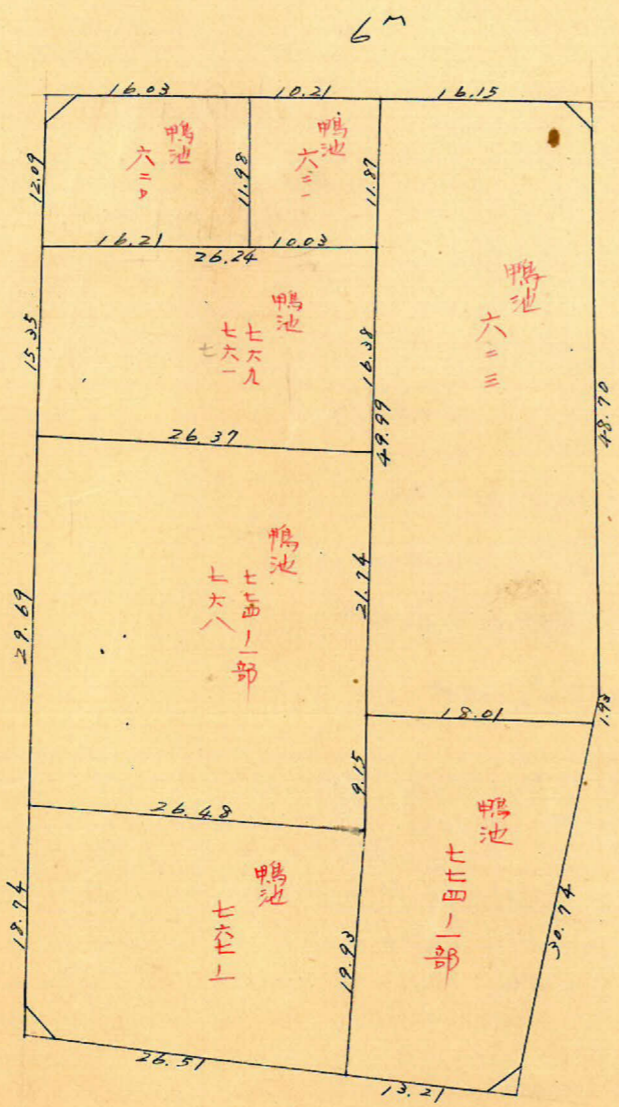 6m
16.03
10.21
16.15
12.09
鴨池
六二〇
11.98
鴨池
六二一
11.87
16.21
10.03
26.24
鴨池
六二三
15.35
鴨池
七六九
七六一
七
16.38
49.99
48.70
26.37
29.69
鴨池
七七四ノ一部
七六八
21.74
18.01
1.93
9.15
26.48
18.74
鴨池
七六七ノ一
19.93
鴨池
七七四ノ一部
30.74
26.51
13.21